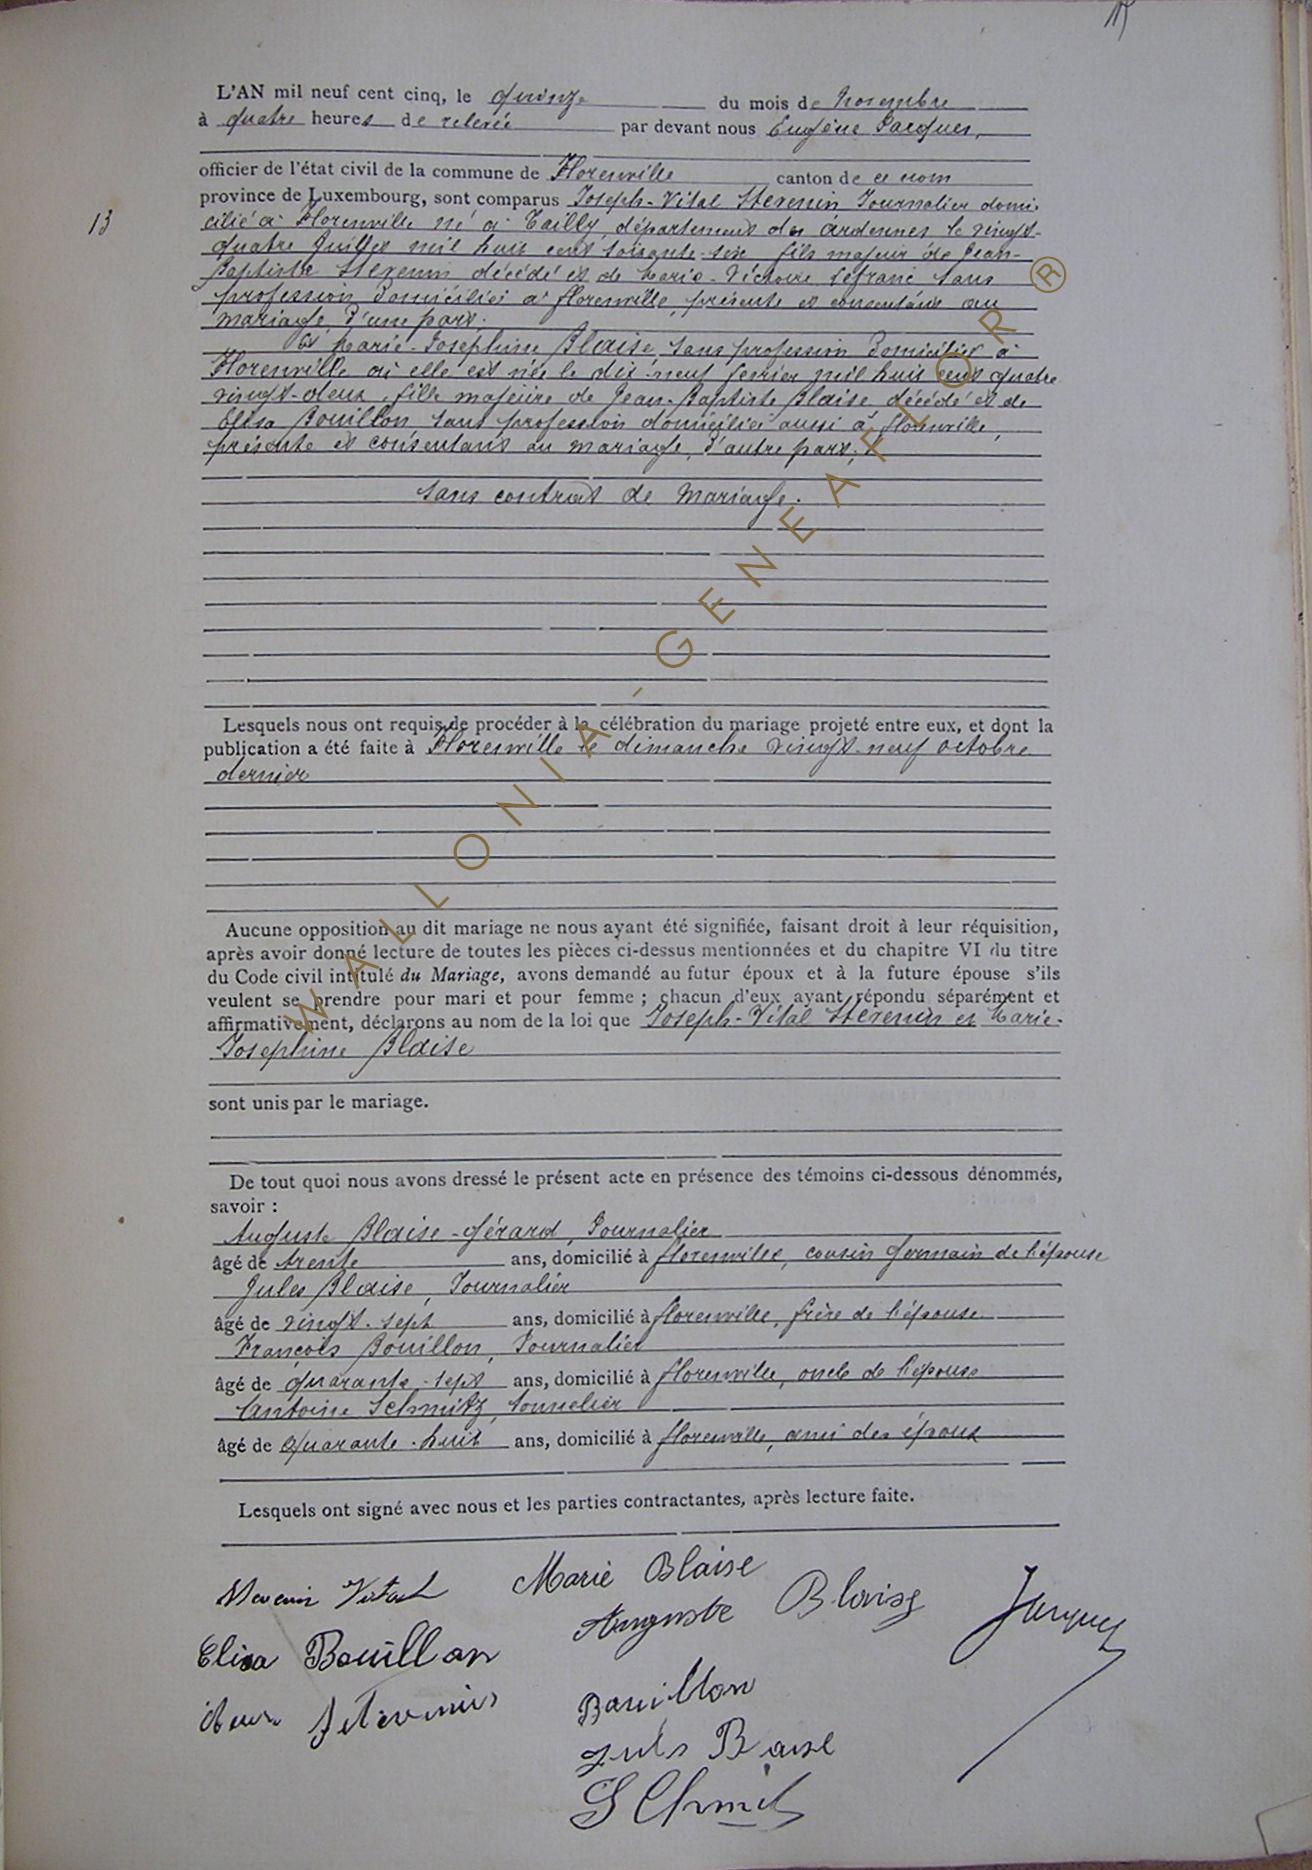 15
L'AN mil neuf cent cinq, le quinze du mois de Novembre
à quatre heures de relevée par devant nous Eugène Jacques,
officier de l'état civil de la commune de Florenville canton de ce nom
13
province de Luxembourg, sont comparus Joseph-Vital Stevenin Journalier domi-
cilié à Florenville né à Tailly, département des Ardennes le vingt-
quatre Juillet mil huit cent soixante-six fils majeur de Jean-
Baptiste Stevenin décédé et de Marie-Victoire Lefranc sans
profession domiciliée à Florenville, présente et consentant au
mariage, d'une part.
Et Marie-Joséphine Blaise, sans profession domiciliée à
Florenville où elle est née le dix-neuf février mil huit cent quatre
vingt-deux, fille majeure de Jean-Baptiste Blaise décédé et de
Elisa Bouillon sans profession domiciliée aussi à Florenville,
présente et consentant au mariage, d'autre part;
Sans contrat de Mariage.
Lesquels nous ont requis de procéder à la célébration du mariage projeté entre eux, et dont la
publication a été faite à Florenville le dimanche vingt-neuf octobre
dernier
Aucune opposition au dit mariage ne nous ayant été signifiée, faisant droit à leur réquisition,
après avoir donné lecture de toutes les pièces ci-dessus mentionnées et du chapitre VI du titre
du Code civil intitulé du Mariage, avons demandé au futur époux et à la future épouse s'ils
veulent se prendre pour mari et pour femme ; chacun d'eux ayant répondu séparément et
affirmativement, déclarons au nom de la loi que Joseph-Vital Stevenin et Marie-
Joséphine Blaise
sont unis par le mariage.
De tout quoi nous avons dressé le présent acte en présence des témoins ci-dessous dénommés,
savoir :
Auguste Blaise-Gérard, Journalier
âgé de trente ans, domicilié à Florenville, cousin germain de l'épouse
Jules Blaise, Journalier
âgé de vingt-sept ans, domicilié à Florenville, frère de l'épouse
François Bouillon, Journalier
âgé de quarante-sept ans, domicilié à Florenville, oncle de l'épouse
Antoine Schmitz, tonnelier
âgé de quarante-huit ans, domicilié à Florenville, ami des époux
Lesquels ont signé avec nous et les parties contractantes, après lecture faite.
Stevenin Vital Marie Blaise
Auguste Blaise Jacques
Elisa Bouillon
Stevenin Bouillon
Jules Blaise
Schmit
WALLONIA-GENEAFLOR®